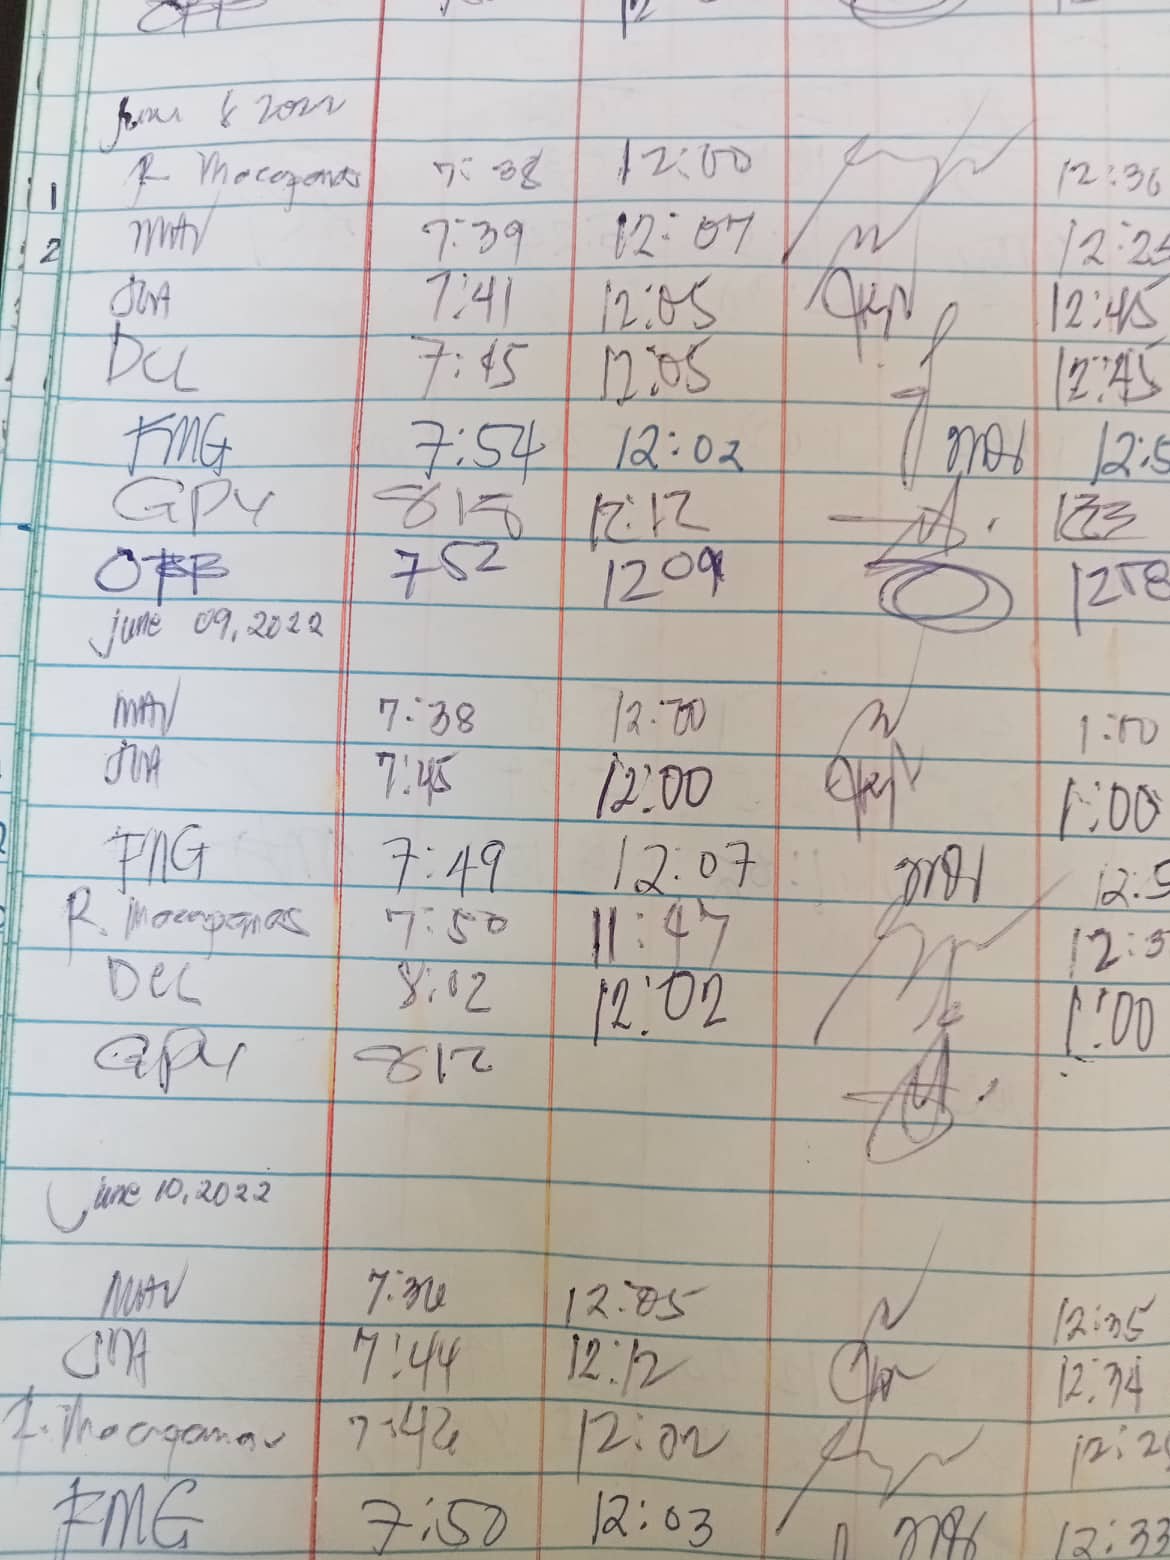 June 8 2022
R. Macaganas 7:38 12:00 12:36
1
MAV 7:39 12:07
2
JVA 7:41 12:05 12:45
DCL 7:45 12:05 12:45
FMG 7:54 12:02 12:5
GPY 818 12:12 123
OFF 752 1209 1258
june 09, 2022
MAV 7:38 12:00 1:00
JVA 7:45 12:00 1:00
FMG 7:49 12:07 12:5
R. Macaganas 7:50 11:47 12:3
DCL 8:02 12:02 1:00
GPY 812
june 10, 2022
MAV 7:36 12:05 12:35
JVA 7:44 12:12 12:34
R. Macaganas 7:46 12:02 12:2
FMG 7:50 12:03 12:33